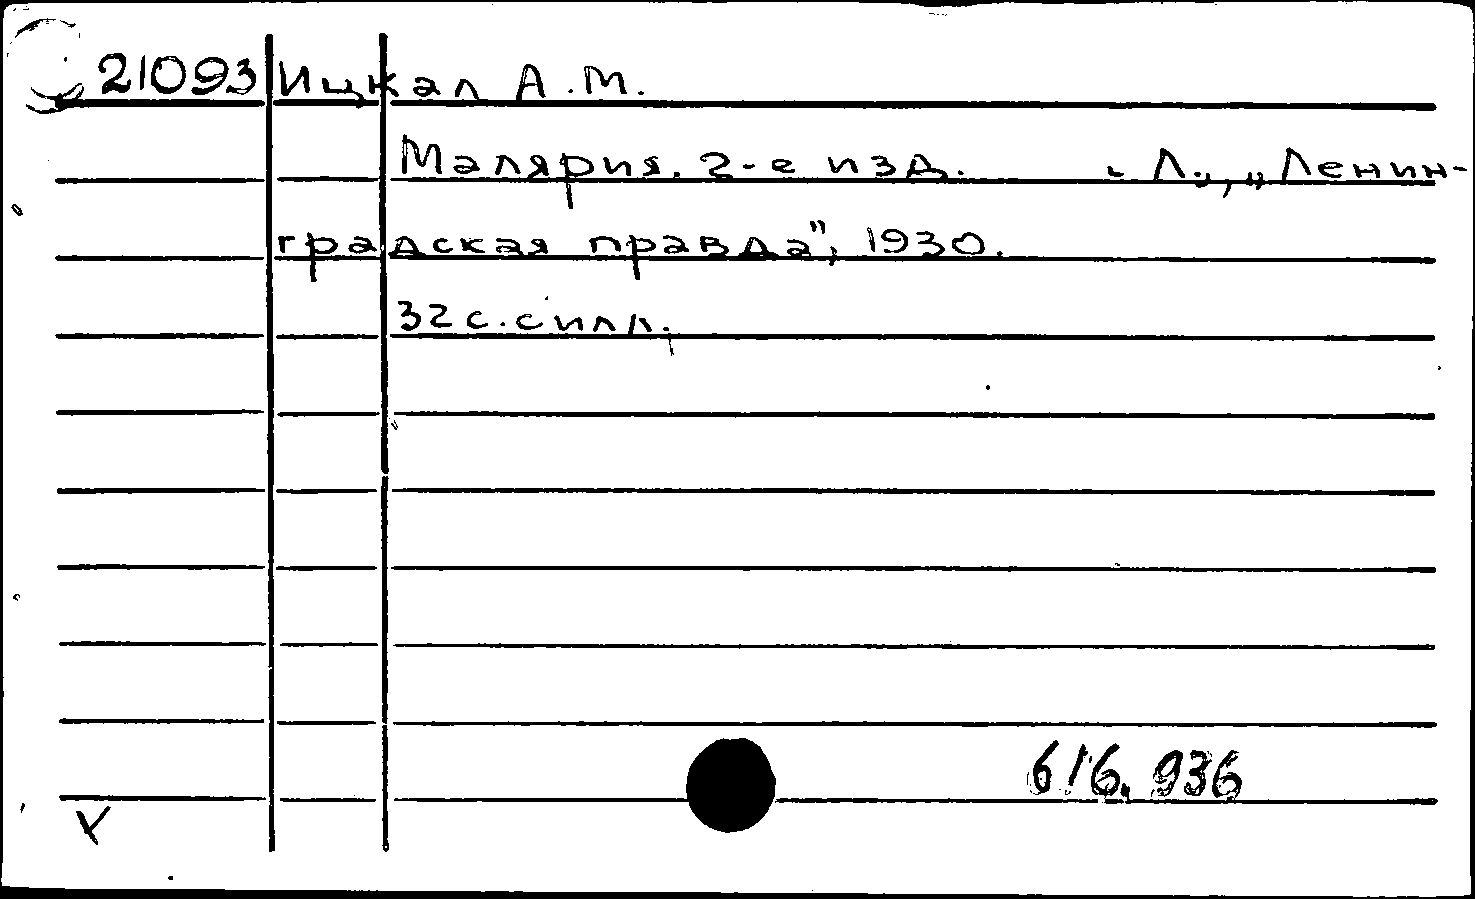 21093 Ицкал А.М.
Малярия. 2-е изд. Л., „Ленин-
градская правда", 1930.
32 с. с илл.
616.936